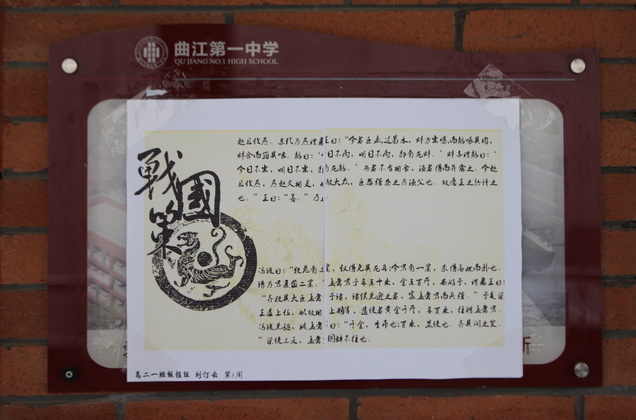 曲江第一中学
QU JIANG NO.1 HIGH SCHOOL
戰國策
赵且伐燕。苏代乃燕谓王曰："今者臣来过易水，蚌方出曝，而鹬啄其肉，
蚌合而箝其喙。鹬曰：'日不雨，明日不雨，即有死蚌。'蚌亦谓鹬曰：'
今日不出，明日不出，即有死鹬。'两者不肯相舍，渔者得而并禽之。今赵
且伐燕，燕赵久相支，敝大众，臣恐强秦之为渔父也。故愿王之熟计之
也。"王曰："善。"乃
冯谖曰："狡兔有三窟，仅得免其死耳；今有一窟，未得高枕而卧也。
请为君复凿二窟。"孟尝君予车五十乘，金五百斤，西游于梁，谓惠王曰：
"齐放其大臣孟尝君于诸侯，诸侯先迎之者，富而兵强。"于是梁
王虚上位，以故相上将军，遣使者黄金千斤，车百乘，往聘孟尝君。
冯谖先驱，诫孟尝曰："千金，重币也；百乘，显使也。齐其闻之矣。
"梁使三反，孟尝固辞不往也。
高二一班 刘订云